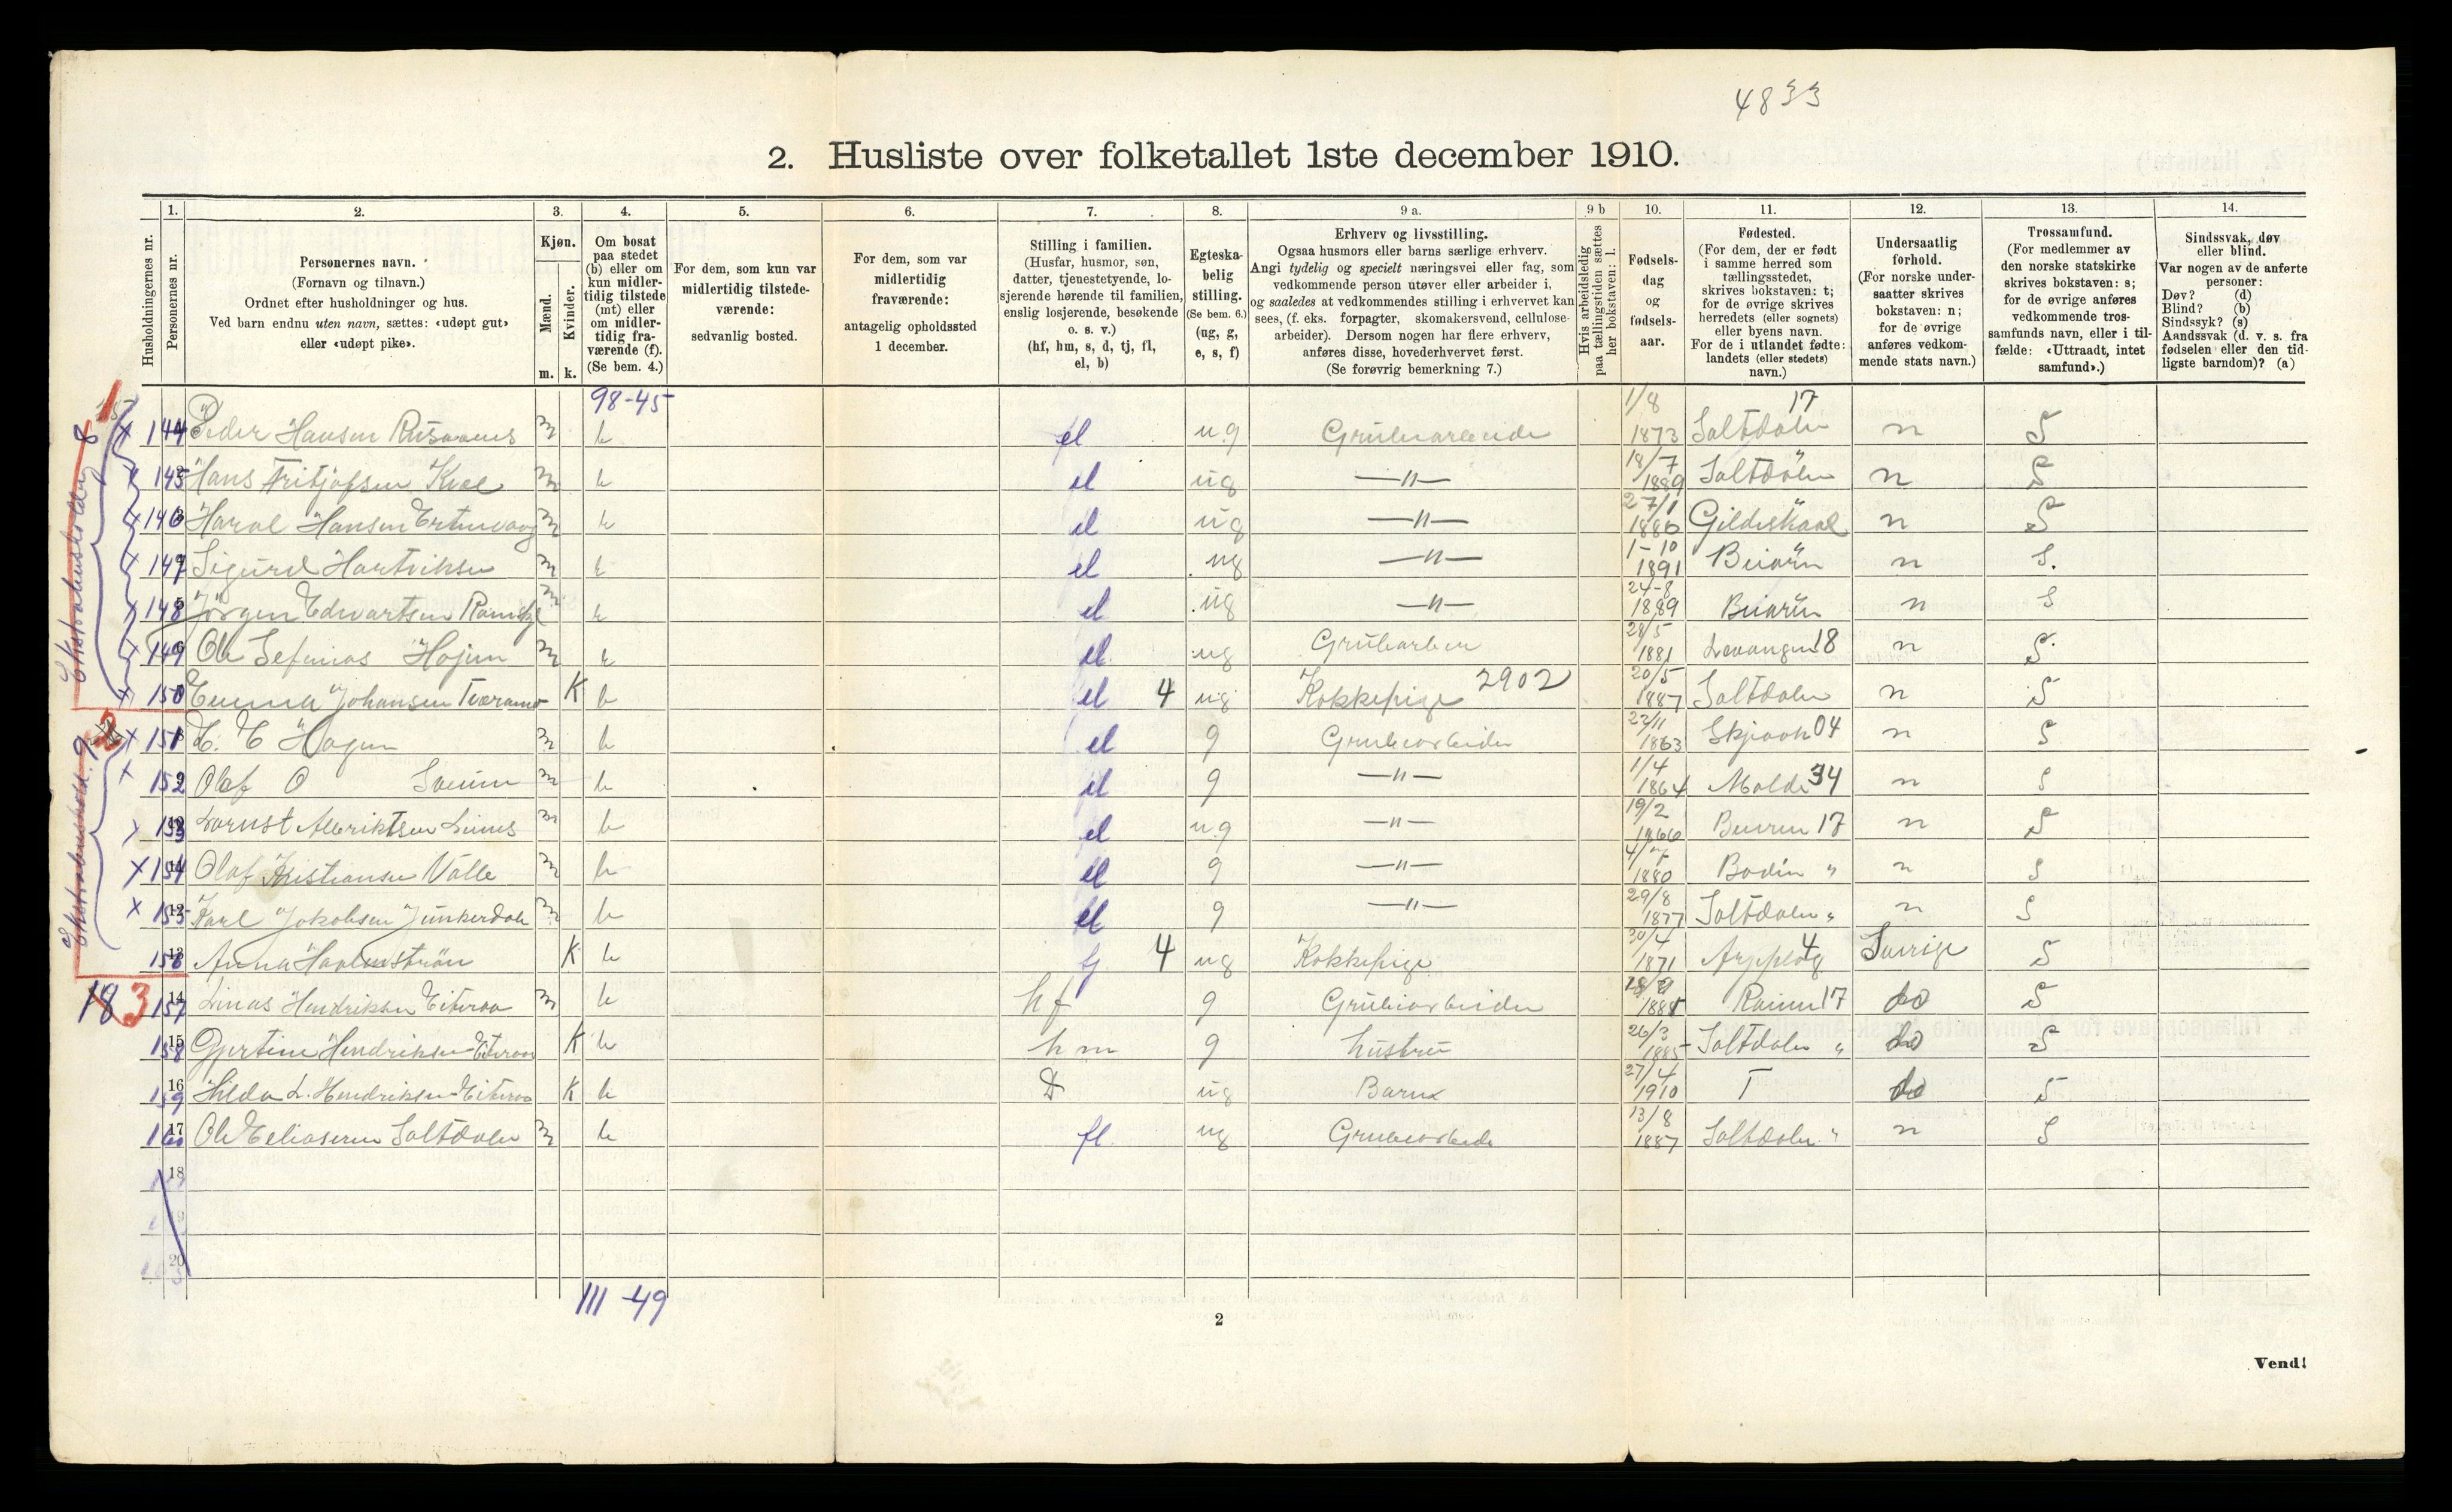 4833
2. Husliste over folketallet 1ste december 1910.
Husholdningernes nr.
1.
Personernes nr.
2.
Personernes navn.
(Fornavn og tilnavn.)
Ordnet efter husholdninger og hus.
Ved barn endnu uten navn, sættes: «udøpt gut»
eller «udøpt pike».
3.
Kjøn.
Mænd.
Kvinder.
m. k.
4.
Om bosat
paa stedet
(b) eller om
kun midler-
tidig tilstede
(mt) eller
om midler-
tidig fra-
værende (f).
(Se bem. 4.)
5.
For dem, som kun var
midlertidig tilstede-
værende:
sedvanlig bosted.
6.
For dem, som var
midlertidig
fraværende:
antagelig opholdssted
1 december.
7.
Stilling i familien.
(Husfar, husmor, søn,
datter, tjenestetyende, lo-
sjerende hørende til familien,
enslig losjerende, besøkende
o. s. v.)
(hf, hm, s, d, tj, fl,
el, b)
8.
Egteska-
belig
stilling.
(Se bem. 6.)
(ug, g,
e, s, f)
9 a.
Erhverv og livsstilling.
Ogsaa husmors eller barns særlige erhverv.
Angi tydelig og specielt næringsvei eller fag, som
vedkommende person utøver eller arbeider i,
og saaledes at vedkommendes stilling i erhvervet kan
sees, (f. eks. forpagter, skomakersvend, cellulose-
arbeider). Dersom nogen har flere erhverv,
anføres disse, hovederhvervet først.
(Se forøvrig bemerkning 7.)
9 b
Hvis arbeidsledig
paa tællingstiden sættes
her bokstaven: l.
10.
Fødsels-
dag
og
fødsels-
aar.
11.
Fødested.
(For dem, der er født
i samme herred som
tællingsstedet,
skrives bokstaven: t;
for de øvrige skrives
herredets (eller sognets)
eller byens navn.
For de i utlandet fødte:
landets (eller stedets)
navn.)
12.
Undersaatlig
forhold.
(For norske under-
saatter skrives
bokstaven: n;
for de øvrige
anføres vedkom-
mende stats navn.)
13.
Trossamfund.
(For medlemmer av
den norske statskirke
skrives bokstaven: s;
for de øvrige anføres
vedkommende tros-
samfunds navn, eller i til-
fælde: «Uttraadt, intet
samfund».)
14.
Sindssvak, døv
eller blind.
Var nogen av de anførte
personer:
Døv? (d)
Blind? (b)
Sindssyk? (s)
Aandssvak (d. v. s. fra
fødselen eller den tid-
ligste barndom)? (a)
98-45
Ekstrahushold. 8
144 Peder Hansen m b el ug Grubearbeide 1/8 1873 Saltdalen 17 n S
145 Hans Fritjofsen Kvæl m b el ug —"— 18/7 1889 Saltdalen n S
146 Haral Hansen m b el ug —"— 27/1 1886 Gildeskaal n S
147 Sigurd Hartviksen m b el ug —"— 1-10 1891 Beiarn n S.
148 Jørgen Edvartsen m b el ug —"— 24-8 1889 Beiarn n S
149 Ole Sefanias Hojem m b el ug Grubarbei 28/5 1881 Levanger 18 n S.
150 Emma Johansen K b el 4 ug Kokkepige 2902 20/5 1887 Saltdalen n S
Ekstrahushold. 9
151 E. E Hagen m b el g Grubearbeider 22/11 1863 Skjaak 04 n S
152 Olaf O Sveum m b el g —"— 1/4 1864 Molde 34 n S
153 m b el ug —"— 19/2 1866 Beiren 17 n S
154 Olaf Kristiansen Valle m b el g —"— 1880 Bodin " n S
155 Karl Jakobsen Junkerdal m b el g —"— 29/8 1877 Saltdalen " n S
156 Anna Holmström K b 4 ug Kokkepige 30/4 1871 Arjeplog 4 Sverige S
18 3
157 Linas Hendriksen Eiteraa m b hf g Grubearbeider Ranen 17 do S
158 Gjertine Hendriksen Eiteraa K b hm g hustru 26/3 1885 Saltdalen " do S
159 Hilda L. Hendriksen Eiteraa K b D ug Barn 27/4 1910 T do S
160 Ole Eliasen Saltdalen m b fl ug Grubearbeide 13/8 1887 Saltdalen " n S
18
19
20
111-49
2
Vend!